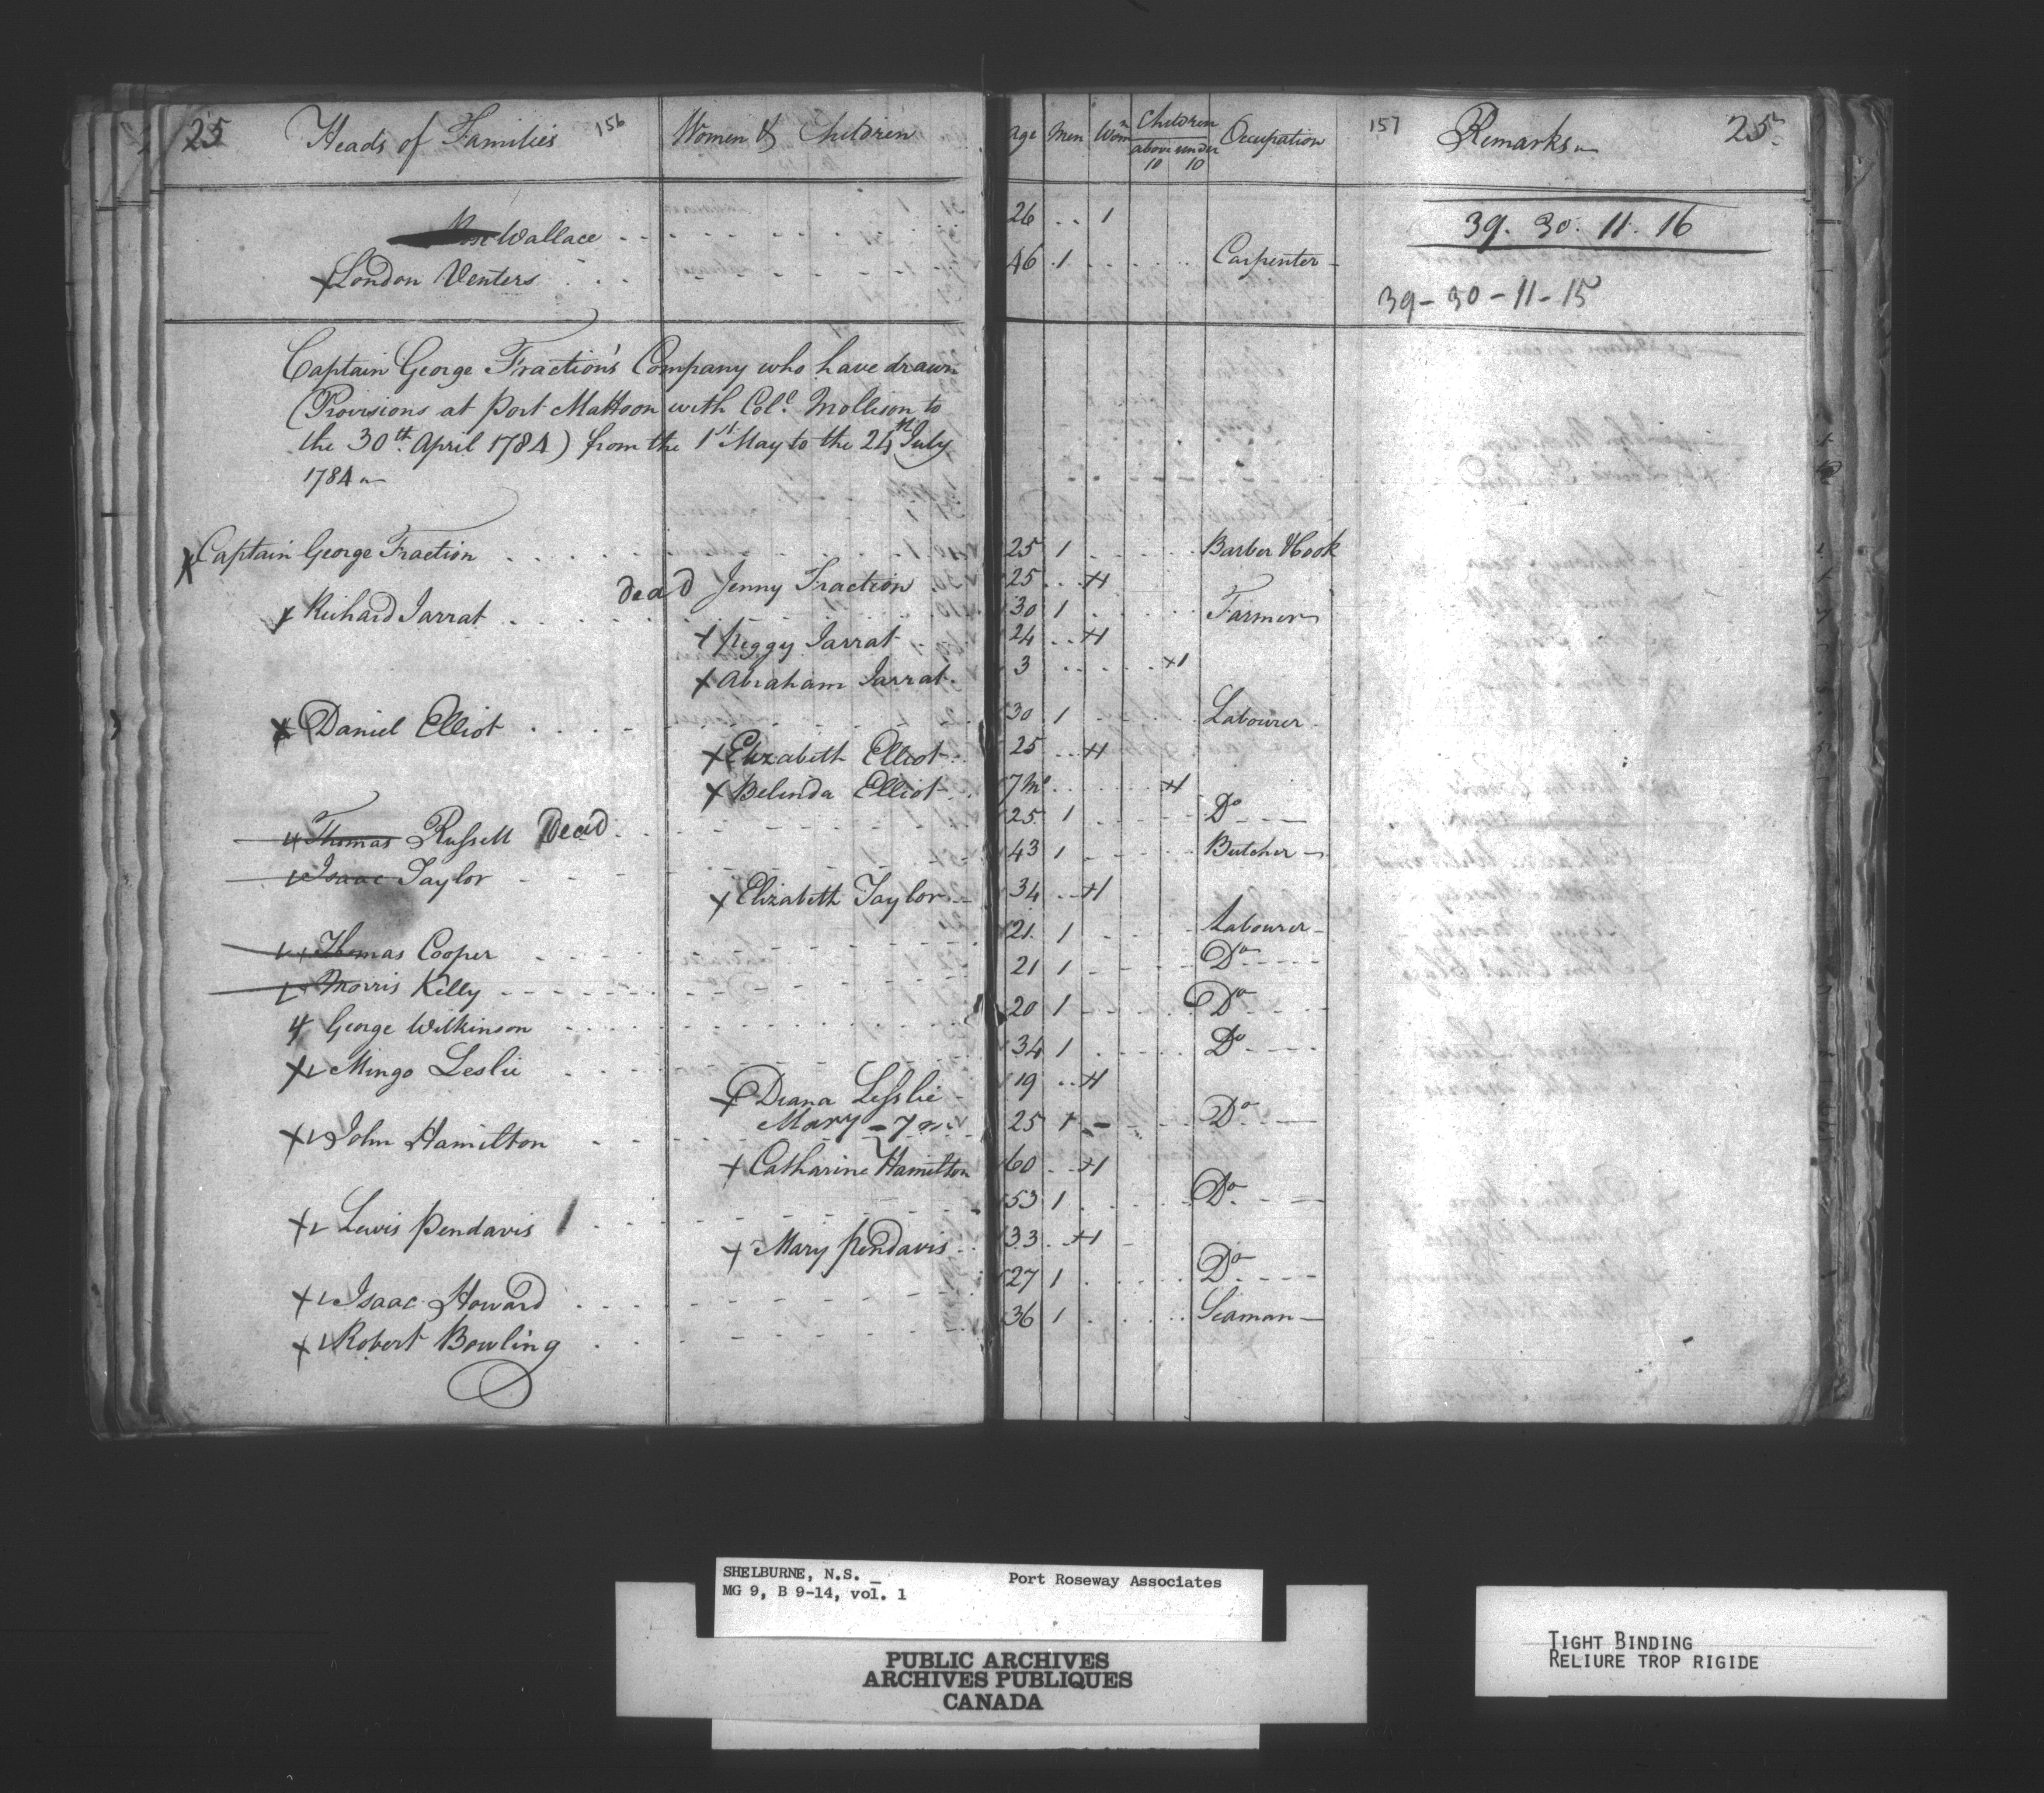 25 Heads of Families 156 Women & Children Age Men Wom.n Children above 10 under 10 Occupation 157 Remarks 25
Rose Wallace 26 1 39. 30. 11. 16
London Venters 46 1 Carpenter
39-30-11-15
Captain George Fraction's Company who have drawn
(Provisions at Port Mattoon with Col.l Mollison to
the 30th. April 1784) from the 1st May to the 24th July
1784
Captain George Fraction 25 1 Barber & Cook
dead Jenny Fraction 25 1
Richard Jarrat 30 1 Farmer
Peggy Jarrat 24 1
Abraham Jarrat 3 1
Daniel Elliot 30 1 Labourer
Elizabeth Elliot 25 1
Belinda Elliot 7 Mo 1
Thomas Russell Dead 25 1 Do
Isaac Taylor 43 1 Butcher
Elizabeth Taylor 34 1
Thomas Cooper 21 1 Labourer
Morris Killy 21 1 Do
George Wilkinson 20 1 Do
Mingo Leslie 34 1 Do
Diana Leslie 19 1
Mary - 7 m
John Hamilton 25 1 Do
Catharine Hamilton 60 1
Lewis Pendavis 53 1 Do
Mary Pendavis 33 1
Isaac Howard 27 1 Do
Robert Bowling 36 1 Seaman
SHELBURNE, N.S. Port Roseway Associates
MG 9, B 9-14, vol. 1
PUBLIC ARCHIVES
ARCHIVES PUBLIQUES
CANADA
TIGHT BINDING
RELIURE TROP RIGIDE